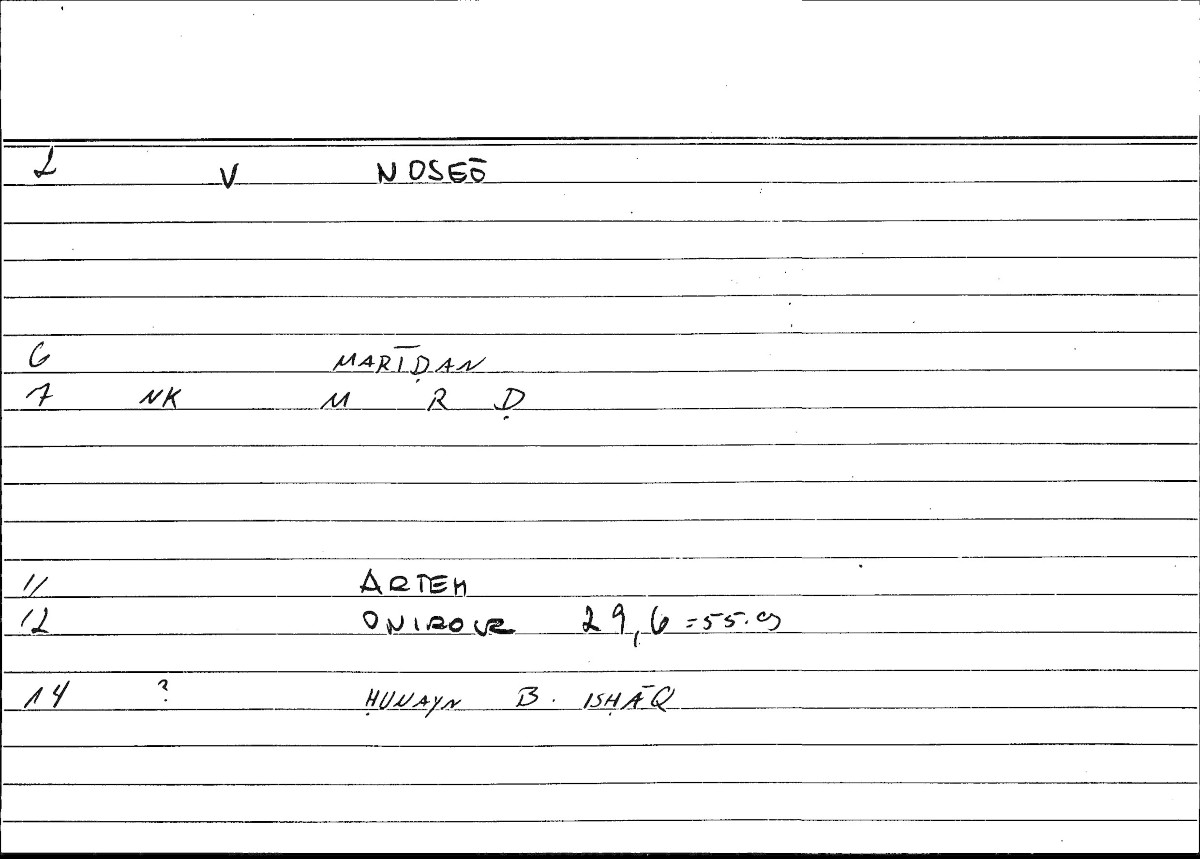 2 V NOSEŌ
6 MARĪḌAN
7 NK M R Ḍ
11 ARTEM
12 ONIROCR 29,6 = 55.9
14 ? ḤUNAYN B. ISḤĀQ